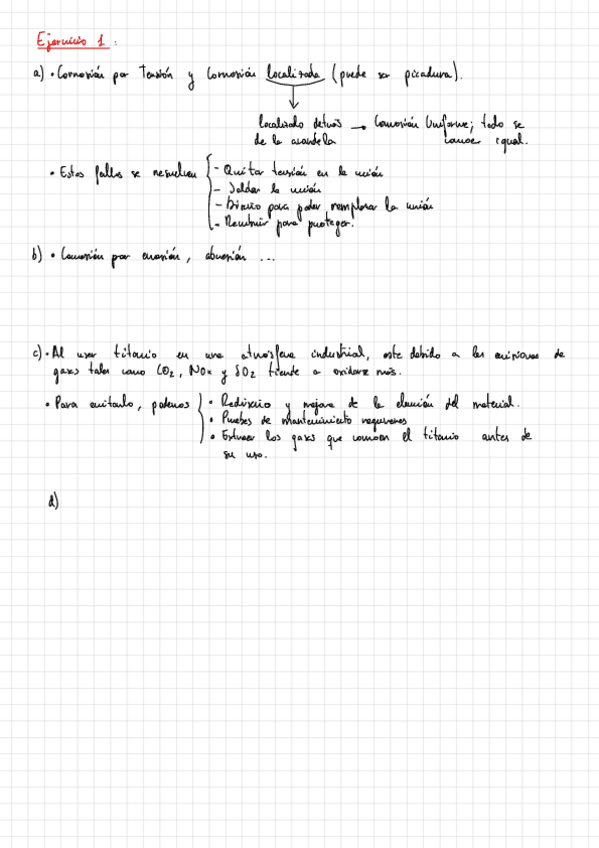 Ejercicio 1:
a) • Corrosión por Tensión y Corrosión localizada (puede ser picadura).
localizado detrás → Corrosión Uniforme; todo se
de la arandela corroe igual.
• Estos fallos se resuelven - Quitar tensión en la unión
- Soldar la unión
- Diseño para poder remplazar la unión
- Recubrir para proteger.
b) • Corrosión por erosión, abrasión ...
c) • Al usar titanio en una atmósfera industrial, este debido a las emisiones de
gases tales como CO2, NOx y SO2 tiende a oxidarse más.
• Para evitarlo, podemos • Rediseño y mejora de la elección del material.
• Pruebas de mantenimiento regulares
• Extraer los gases que corroen el titanio antes de
su uso.
d)